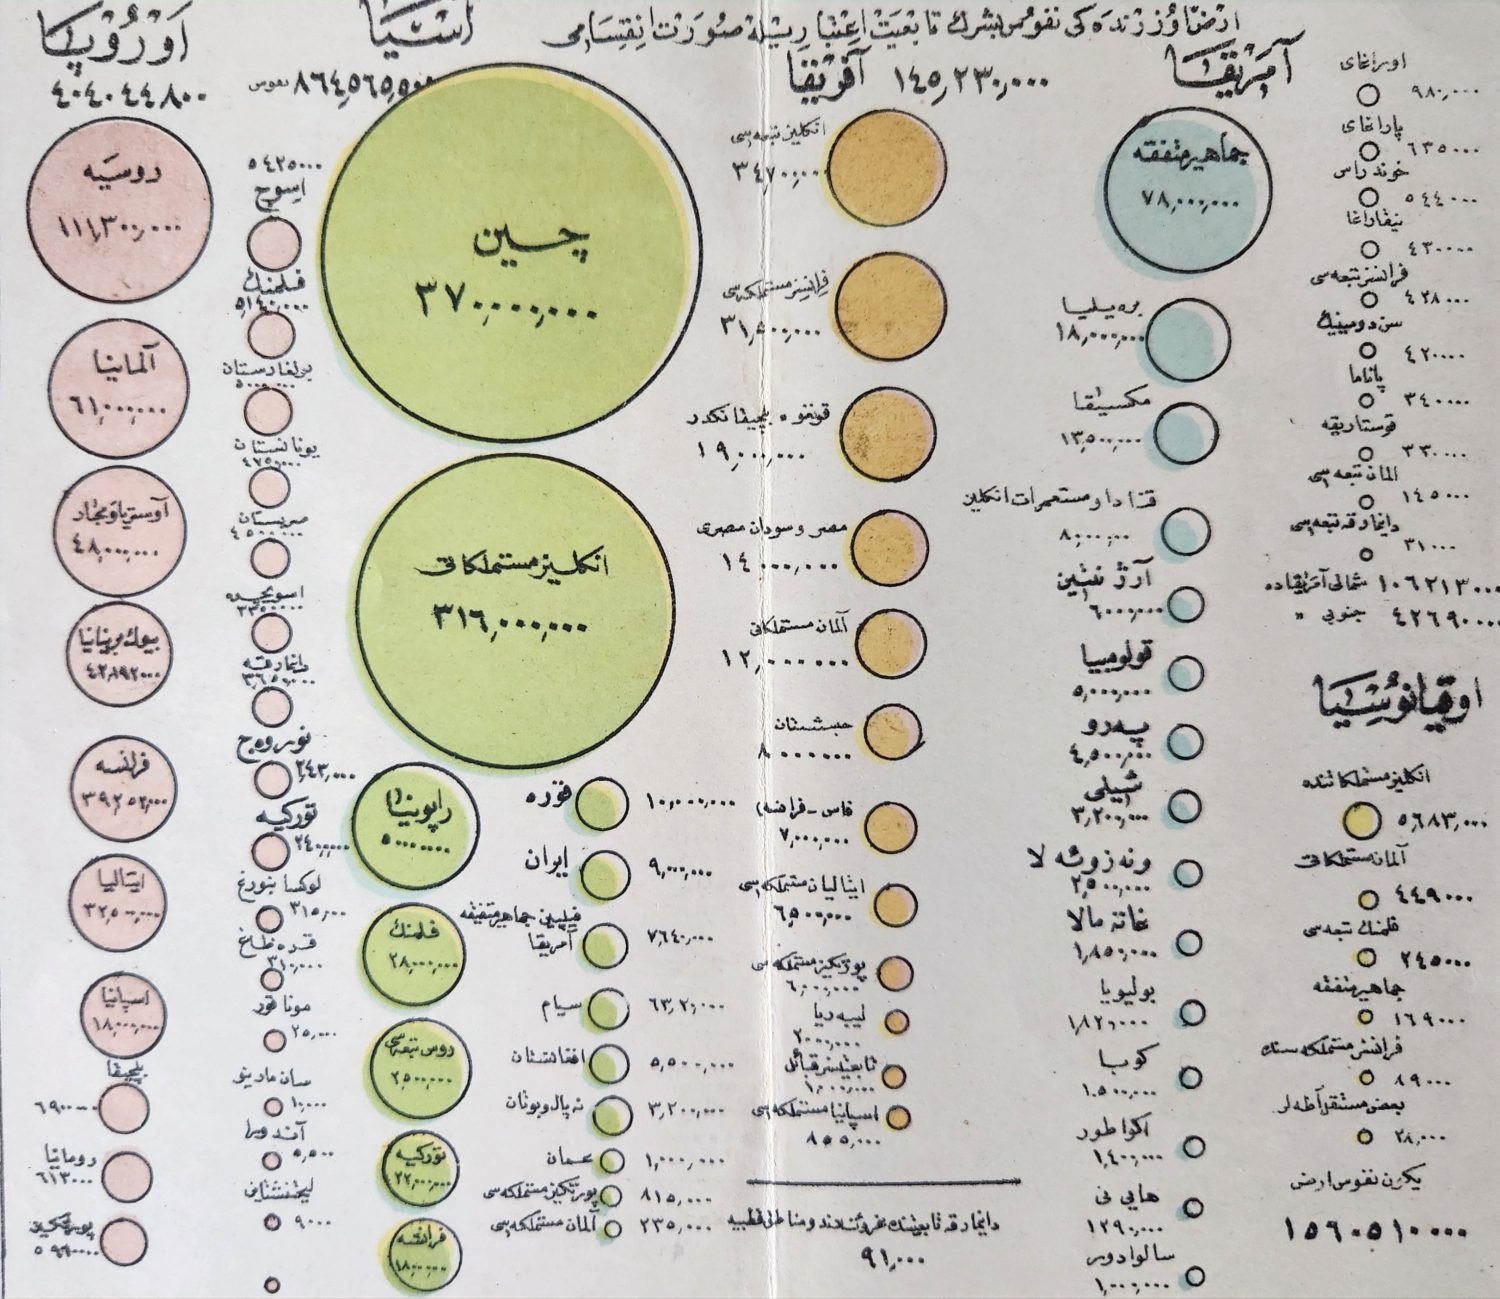 ارض اوزرنده كی نفوس بشرك تابعیت اعتباریله صورت انقسامی
اوروپا
٤٠٤٠٤٤٨٠٠
روسیه
١١١,٣٠٠,٠٠٠
آلمانیا
٦١,٠٠٠,٠٠٠
آوستریا و مجار
٤٨,٠٠٠,٠٠٠
بیوك بریتانیا
٤٢,٨٩٢٠٠٠
فرانسه
٣٩٢٥٢,٠٠٠
ایتالیا
٣٢,٥٠٠,٠٠٠
اسپانیا
١٨,٠٠٠,٠٠٠
بلچیقا
٦٩٠٠٠٠٠
رومانیا
٦١٣٠٠٠٠
پورتكیز
٥٤٢٥٠٠٠
اسوچ
فلمنك
٥,١٤٠,٠٠٠
بولغارستان
٥٠٠٠,٠٠٠
یونانستان
صربستان
اسویچره
٣٣٥٠٠٠٠
دانمارقه
٣,٦٥٠,٠٠٠
نوروه ج
٢,٤٣٠,٠٠٠
توركیه
٢٤٠٠,٠٠٠
لوكسا بنورغ
٣١٥,٠٠٠
قره طاغ
٣١٠,٠٠٠
موناقور
٢٥,٠٠٠
سان مارینو
١٠,٠٠٠
آندورا
٥,٥٠٠
لیختنشتاین
٩٠٠٠
آسیا
٨٦٤,٥٦٥,٥٠٠ نفوس
چین
٣٧٠,٠٠٠,٠٠٠
انكلیز مستملكاتی
٣١٦,٠٠٠,٠٠٠
ژاپونیا
٥٠٠٠٠٠٠٠
فلمنك
٢٨,٠٠٠,٠٠٠
روس تبعه سی
٢٥٠٠٠,٠٠٠
توركیه
٢٢,٠٠٠,٠٠٠
فرانسه
١٨٠٠٠,٠٠٠
قوره
١٠,٠٠٠,٠٠٠
ایران
٩,٠٠٠,٠٠٠
فیلیپین جماهیر متفقه
آمریقا
٧٦٤٠,٠٠٠
سیام
٦٣,٢٠,٠٠٠
افغانستان
٥,٥٠٠,٠٠٠
نه پال و بوتان
٣,٢٠٠,٠٠٠
عمان
١,٠٠٠,٠٠٠
پورتكیز مستملكه سی
٨١٥,٠٠٠
آلمان مستملكه سی
٢٣٥,٠٠٠
آفریقا
١٤٥,٢٣٠,٠٠٠
انكلیز تبعه سی
٣٤,٧٠٠,٠٠٠
فرانسز مستملكه سی
٣١,٥٠٠,٠٠٠
قونغوه بلچیقانكدر
١٩,٠٠٠,٠٠٠
مصر و سودان مصری
١٤٠٠٠,٠٠٠
آلمان مستملكاتی
١٢,٠٠٠٠٠٠
حبشستان
٨٠٠٠٠٠٠
فاس - فرانسه
٧,٠٠٠,٠٠٠
ایتالیان مستملكه سی
٦,٥٠٠,٠٠٠
پورتكیز مستملكه سی
٦,٠٠٠,٠٠٠
لیبه ریا
٢٠٠٠,٠٠٠
تابعیتسز قبائل
١,٠٠٠,٠٠٠
اسپانیا مستملكه سی
٨٥٥,٠٠٠
دانمارقه تابعیتنك غروئنلاند و مناطق قطبیه
٩١,٠٠٠
آمریقا
جماهیر متفقه
٧٨,٠٠٠,٠٠٠
بره زیلیا
١٨,٠٠٠,٠٠٠
مكسیقا
١٣,٥٠٠,٠٠٠
قنادا و مستعمرات انكلیز
٨,٠٠٠,٠٠٠
آرژنتین
٦٠٠٠,٠٠٠
قولومبیا
٥,٠٠٠,٠٠٠
په رو
٤,٥٠٠,٠٠٠
شیلی
٣,٢٠٠,٠٠٠
ونه زوئه لا
٢,٥٠٠,٠٠٠
غاته مالا
١,٨٥٠,٠٠٠
بولیویا
١,٨٢٠,٠٠٠
كوبا
١٥٠٠,٠٠٠
اكواطور
١,٤٠٠,٠٠٠
هایی تی
١٢٩٠,٠٠٠
سالوادور
١,٠٠٠,٠٠٠
اوراغای
٩٨٠,٠٠٠
پاراغای
٦٣٥٠٠٠
خوندراس
٥٤٤٠٠٠
نیقاراغا
٤٣٠٠٠٠
فرانسز تبعه سی
٤٢٨,٠٠٠
سن دومینیك
٤٢٠٠٠٠
پاناما
٣٤٠٠٠٠
قوستاریقه
٣٣٠,٠٠٠
المان تبعه سی
١٤٥٠٠٠
دانمارقه تبعه سی
٣١٠٠٠
شمالی آمریقاده ١٠٦٢١٣٠٠٠
جنوبی " ٤٢٦٩٠٠٠٠
اوقیانوسیا
انكلیز مستملكاتنده
٥,٦٨٣,٠٠٠
آلمان مستملكاتی
٤٤٩٠٠٠
فلمنك تبعه سی
٢٤٥٠٠٠
جماهیر متفقه
١٦٩٠٠٠
فرانسز مستملكه سنك
٨٩٠٠٠
بعض مستقل آطه لر
٢٨,٠٠٠
یكون نفوس ارض
١٥٦٠٥١٠٠٠٠